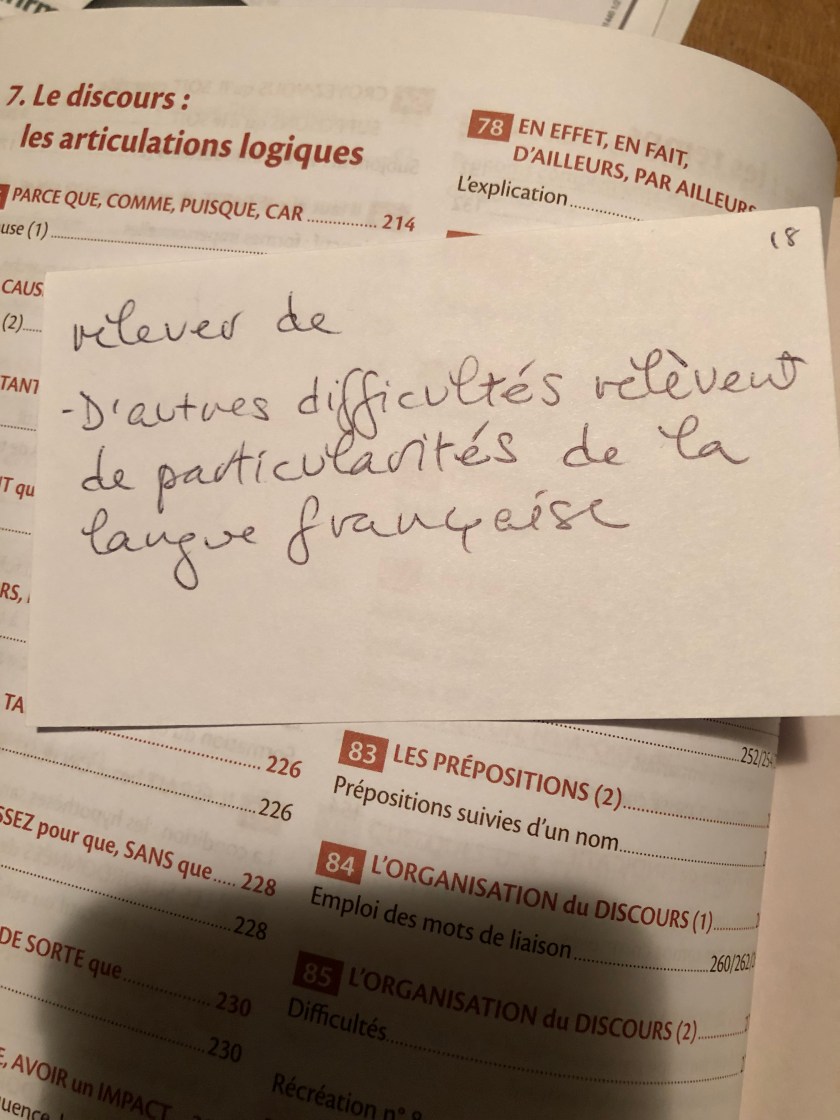 7. Le discours :
les articulations logiques
PARCE QUE, COMME, PUISQUE, CAR 214
use (1)
CAUS
(2)
TANT
T qu
RS,
TA
226
226
SSEZ pour que, SANS que 228
228
DE SORTE que 230
230
E, AVOIR un IMPACT
quence
78 EN EFFET, EN FAIT,
D'AILLEURS, PAR AILLEURS
L'explication
18
relever de
- D'autres difficultés relèvent
de particularités de la
langue française
252/254
83 LES PRÉPOSITIONS (2)
Prépositions suivies d'un nom
84 L'ORGANISATION du DISCOURS (1)
Emploi des mots de liaison 260/262/
85 L'ORGANISATION du DISCOURS (2)
Difficultés
Récréation n°